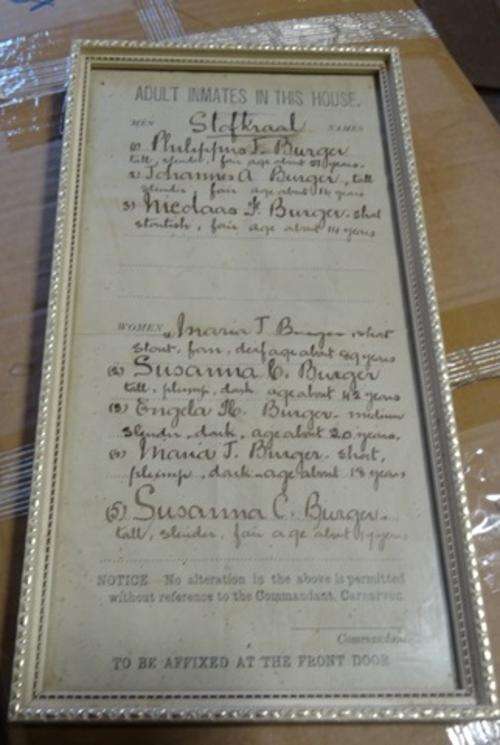 ADULT INMATES IN THIS HOUSE.
MEN Stofkraal NAMES
1) Philippus F. Burger
tall, slender, fair age about years.
2) Johannes A Burger, tall
slender fair age about 16 years
3) Nicolaas F. Burger. shot
stoutish, fair age about 14 years
WOMEN Maria J Burger, short
stout, fair, deaf age about 89 years
(2) Susanna C. Burger
tall, plump, dark age about 42 years
(3) Engela M. Burger. medium
slender, dark, age about 20 years.
(4) Maria J. Burger. short,
plump, dark age about 18 years
(5) Susanna C. Burger.
tall, slender, fair age about years
NOTICE No alteration in the above is permitted
without reference to the Commandant, Carnarvon.
Commandant
TO BE AFFIXED AT THE FRONT DOOR